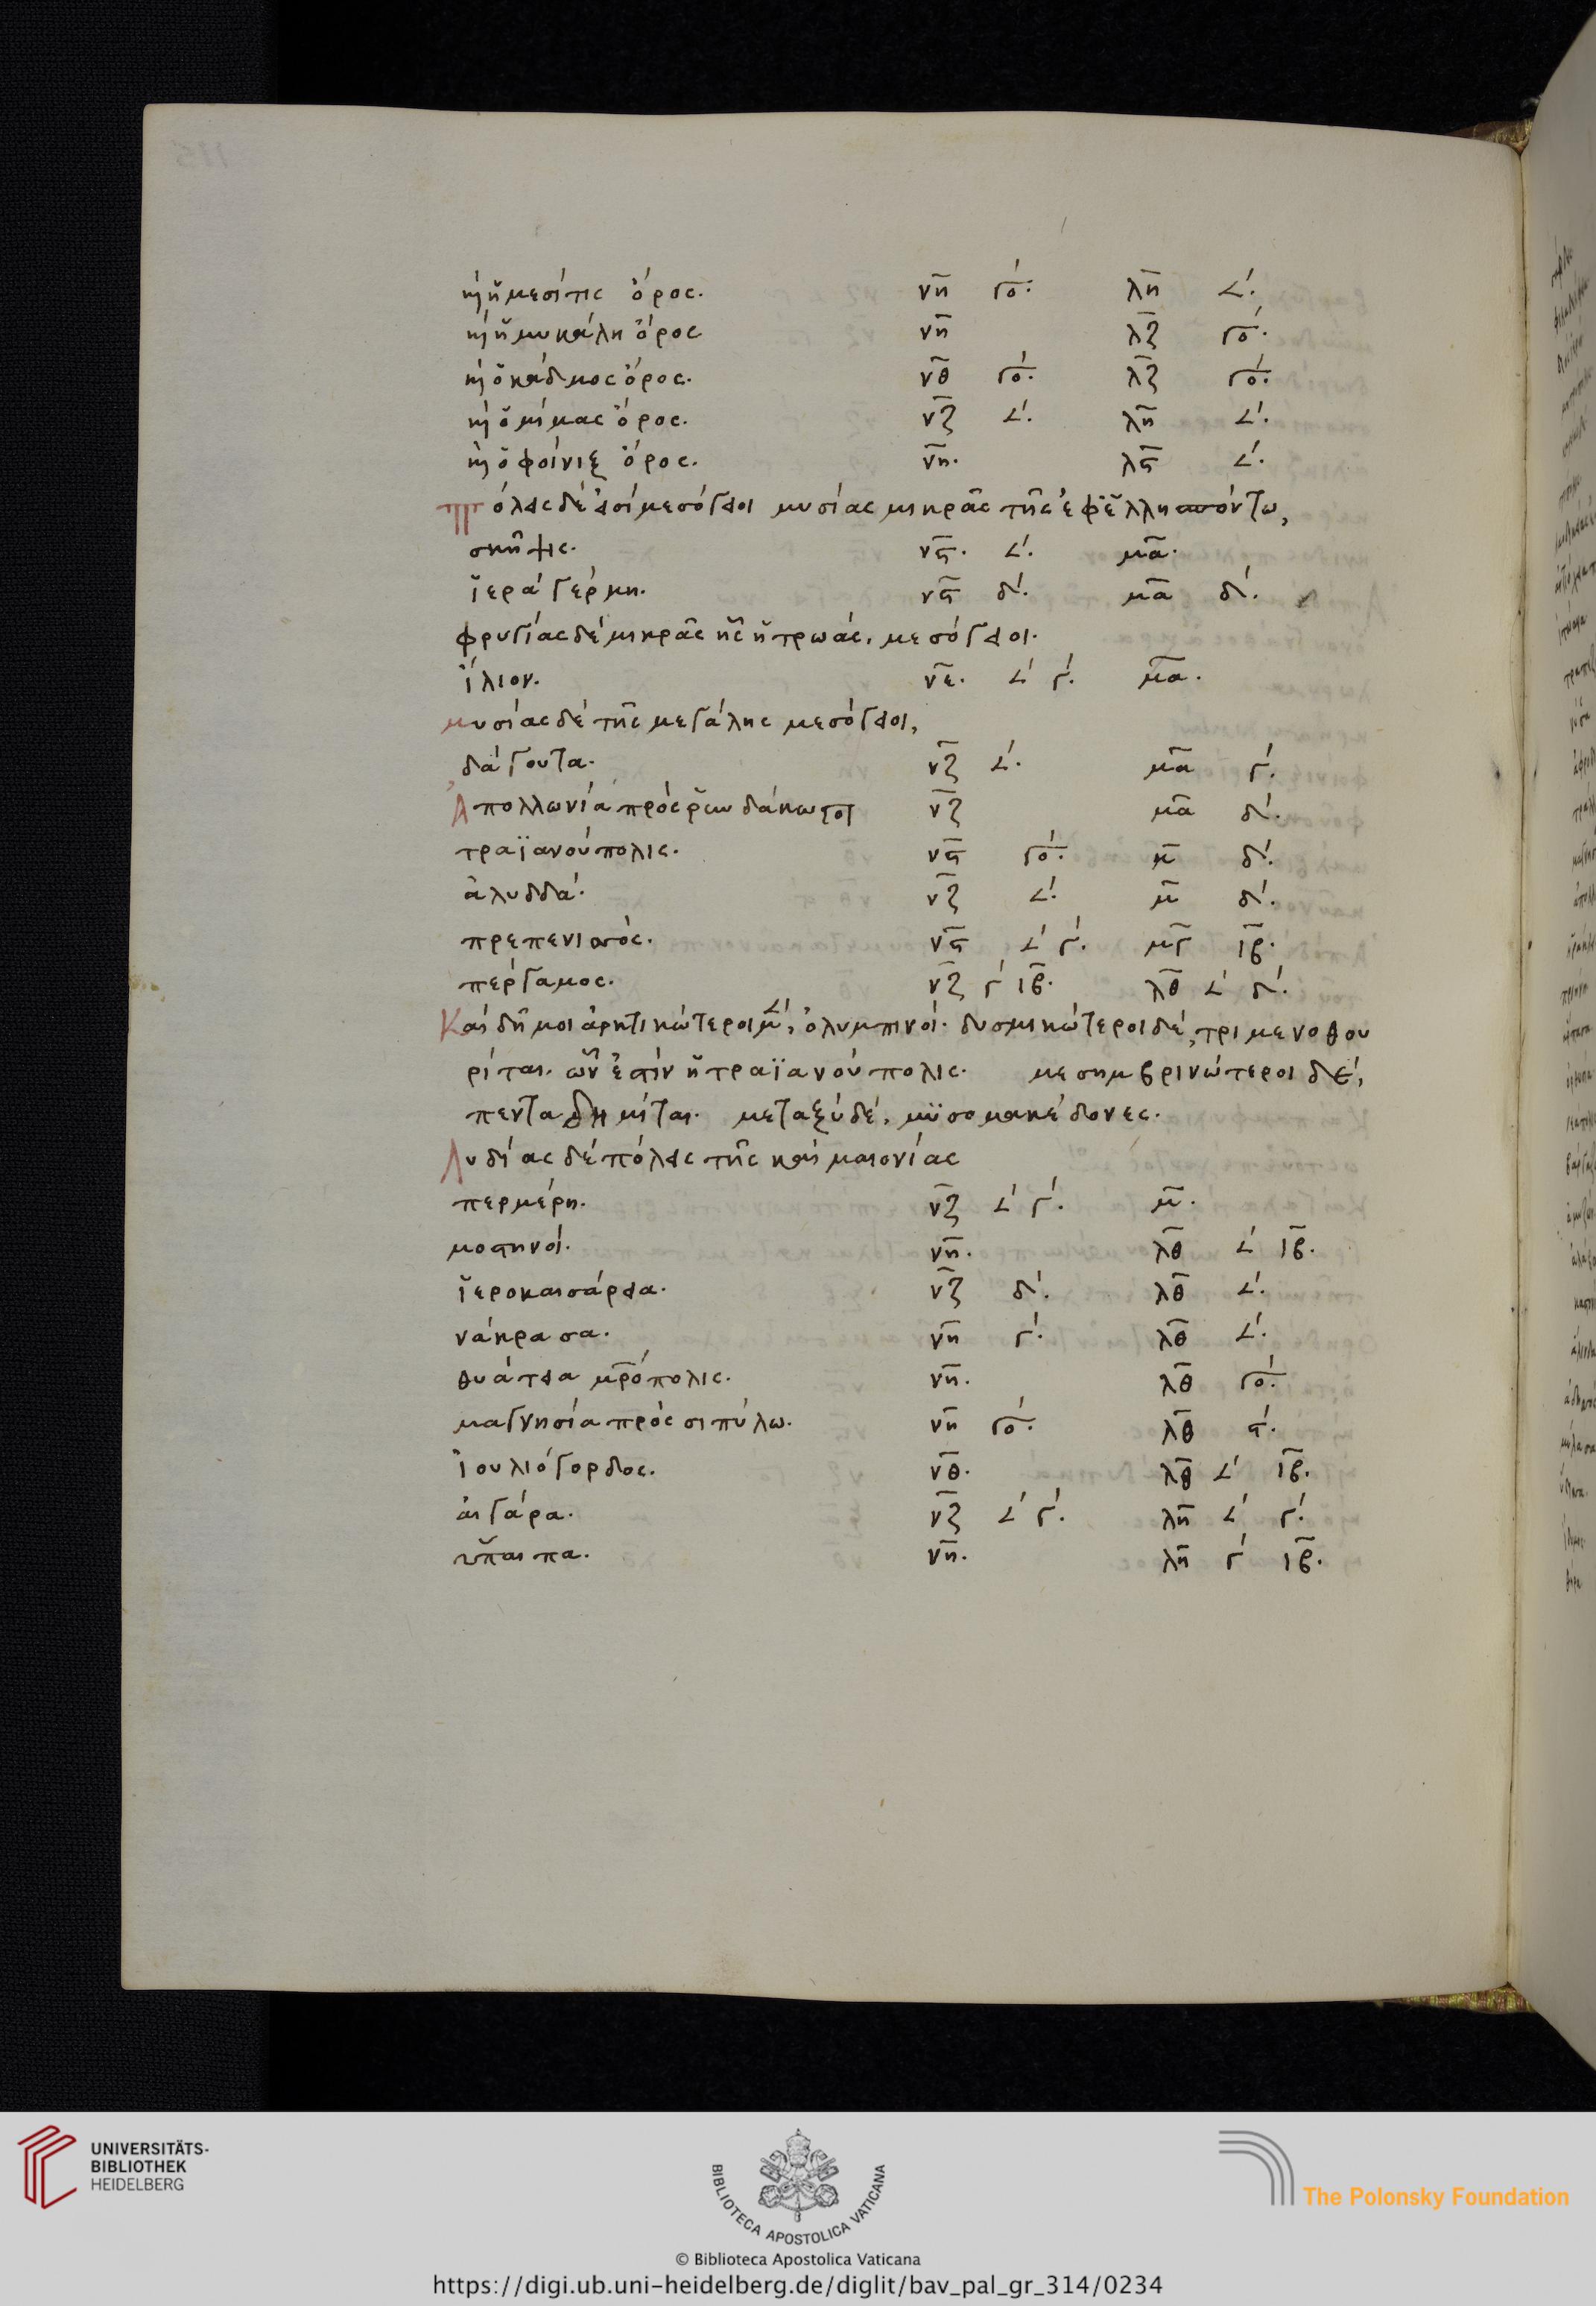 καὶ ἡ μεσίτις ὄρος. νη γο. λη 𐅵.
καὶ ἡ μυκάλη ὄρος νη λζ γο.
καὶ ὁ κάδμος ὄρος. νθ γο. λζ γο.
καὶ ὁ μίμας ὄρος. νζ 𐅵. λη 𐅵.
καὶ ὁ φοίνιξ ὄρος. νη. λϛ 𐅵.
πόλεις δέ εἰσί μεσόγειοι μυσίας μικρᾶς τῆς ἐφ ἑλλησπόντω,
σκῆψις. νϛ. 𐅵. μα.
ἱερά γέρμη. νϛ δ. μα δ.
φρυγίας δέ μικρᾶς ἧς ἡ τρωάς. μεσόγειοι.
ἴλιον. νε. 𐅵 γ. μα.
μυσίας δέ τῆς μεγάλης μεσόγειοι,
δάγουτα. νζ 𐅵. μα γ.
Ἀπολλωνία πρός ῥυνδάκω ποτ νζ μα δ.
τραϊανούπολις. νϛ γο. μ δ.
ἀλυδδά. νζ 𐅵. μ δ.
πρεπενισσός. νϛ 𐅵 γ. μγ ιβ.
πέργαμος. νζ γ ιβ. λθ 𐅵 δ.
Καὶ δῆμοι ἀρκτικώτεροι μ, ὀλυμπινοί. δυσμικώτεροι δέ, τριμενοθου
ρίται. ὧν ἐστίν ἡ τραϊανούπολις. μεσημβρινώτεροι δέ,
πενταδημίται. μεταξύ δέ. μϋσομακέδονες.
Λυδίας δέ πόλεις τῆς καὶ μαιονίας
περμέρη. νζ 𐅵 γ. μ.
μοστηνοί. νη. λθ 𐅵 ιβ.
ἱεροκαισάρεια. νζ δ. λθ 𐅵.
νάκρασα. νη γ. λθ 𐅵.
θυάτεια μρόπολις. νη. λθ γο.
μαγνησία πρός σιπύλω. νη γο. λθ ϛ.
ἰουλιόγορδος. νθ. λθ 𐅵 ιβ.
αἰγάρα. νζ 𐅵 γ. λη 𐅵 γ.
ὕπαιπα. νη. λη γ ιβ.
UNIVERSITÄTS-
BIBLIOTHEK
HEIDELBERG
BIBLIOTECA APOSTOLICA VATICANA
The Polonsky Foundation
© Biblioteca Apostolica Vaticana
https://digi.ub.uni-heidelberg.de/diglit/bav_pal_gr_314/0234